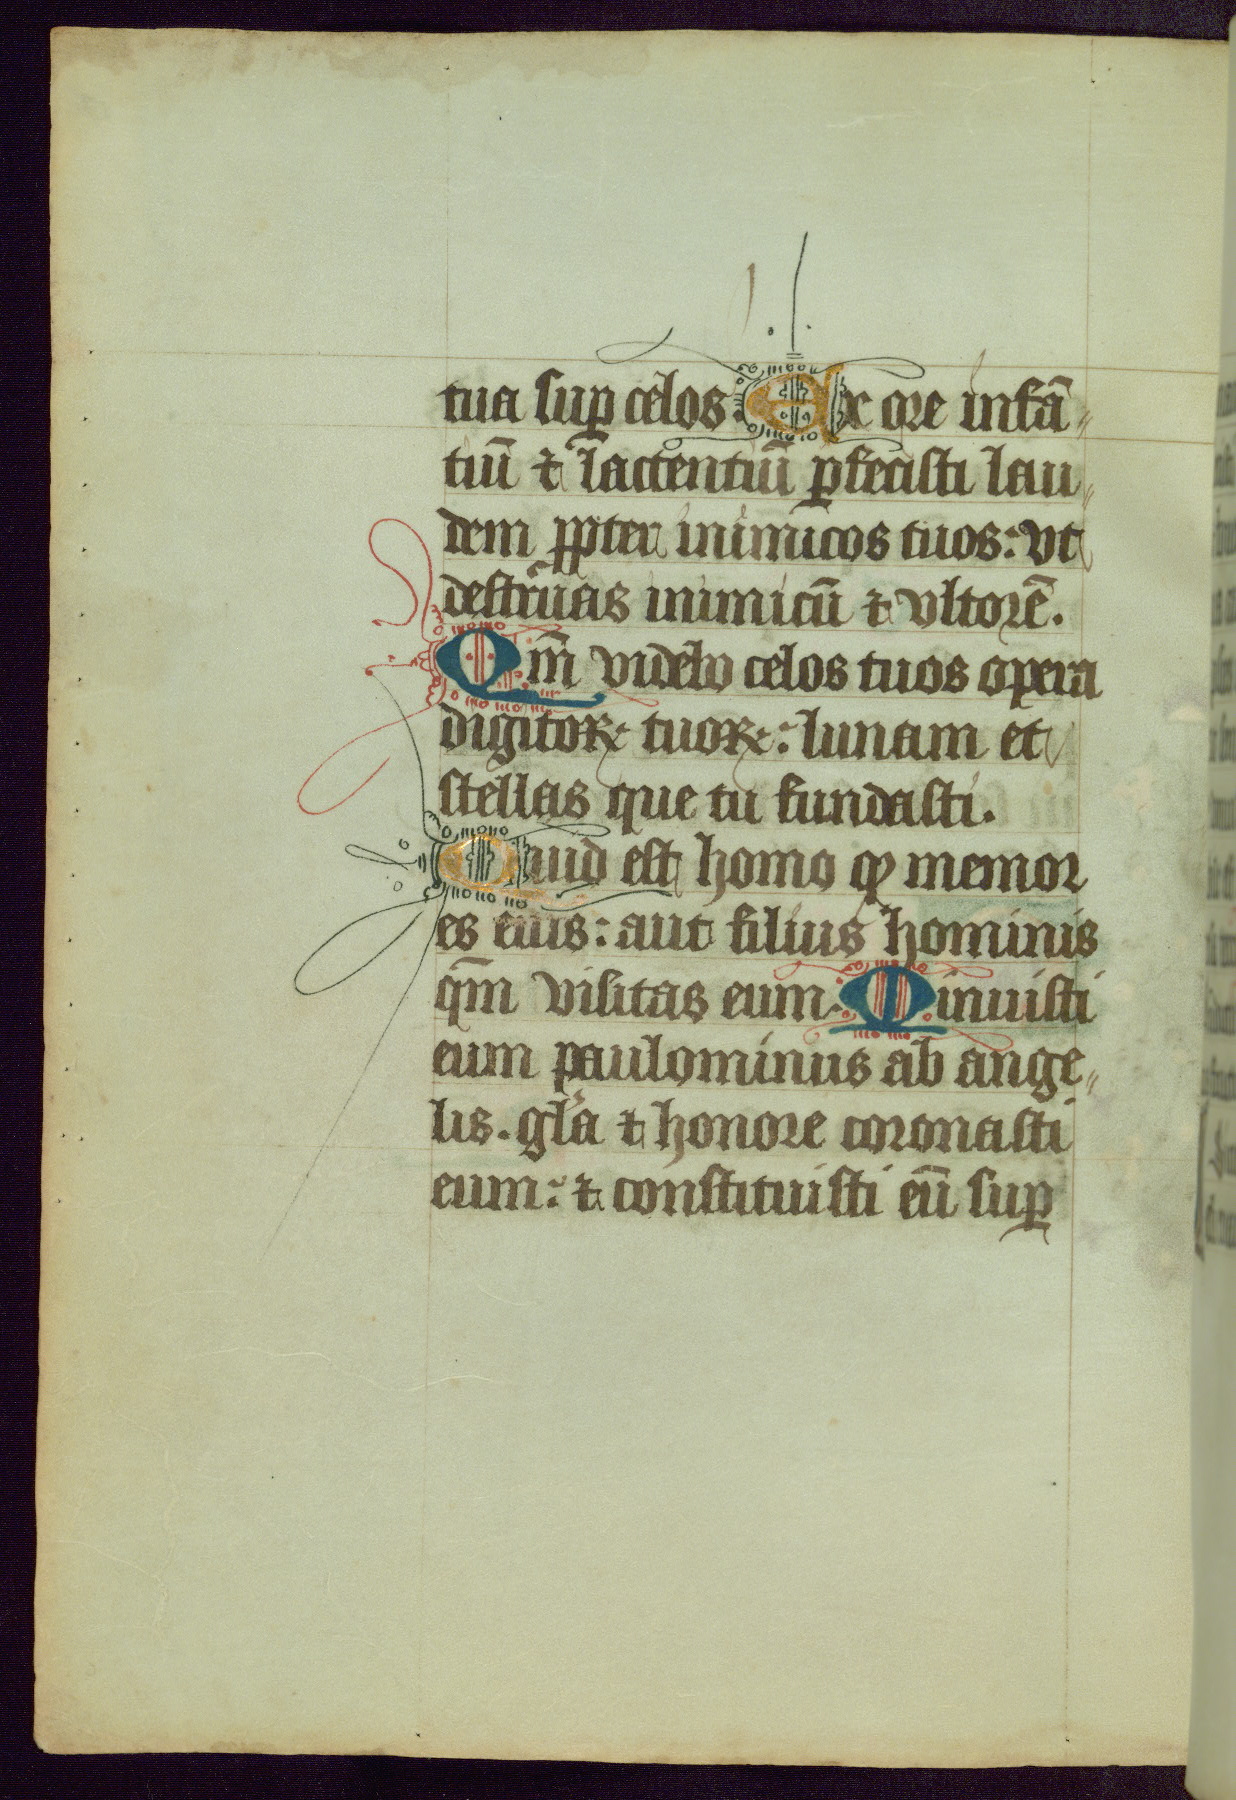 tua sup̱ celos. Ex ore infā„
tiū ⁊ lactentiū ꝑfecisti lau„
dem ꝓpter inimicos tuos: vt
destruas inimicū ⁊ vltorē.
Qm̄ videbo celos tuos opera
digitoꝝ tuoꝝ: lunam et
stellas que tu fundasti.
Quid est homo ꝙ memor
es eius: aut filius hominis
qm̄ visitas eum. Minuisti
eum paulominus ab ange„
lis. gl̓a ⁊ honore coronasti
eum: ⁊ constituisti eū sup̱